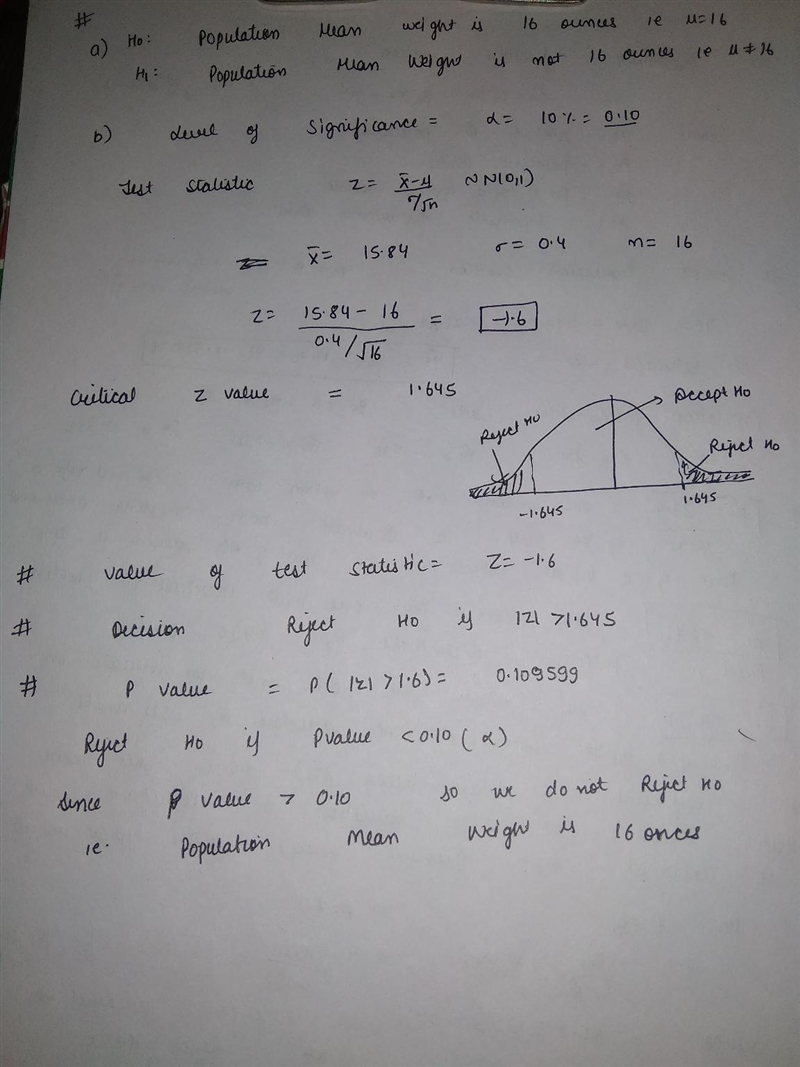 #
a) H0: Population Mean weight is 16 ounces ie μ=16
H1: Population Mean Weight is not 16 ounces ie μ≠16
b) Level of Significance = α= 10%= 0.10
Test Statistic Z= x̄-μ / σ/√n ~ N(0,1)
x̄= 15.84 σ= 0.4 n= 16
Z= 15.84 - 16 / 0.4/√16 = -1.6
Critical Z value = 1.645
Accept H0
Reject H0
Reject H0
-1.645
1.645
# value of test statistic= Z= -1.6
# Decision Reject H0 if |Z| >1.645
# P value = P( |Z| >1.6)= 0.109599
Reject H0 if Pvalue <0.10 (α)
Since P value > 0.10 so we do not Reject H0
ie. Population Mean Weight is 16 onces